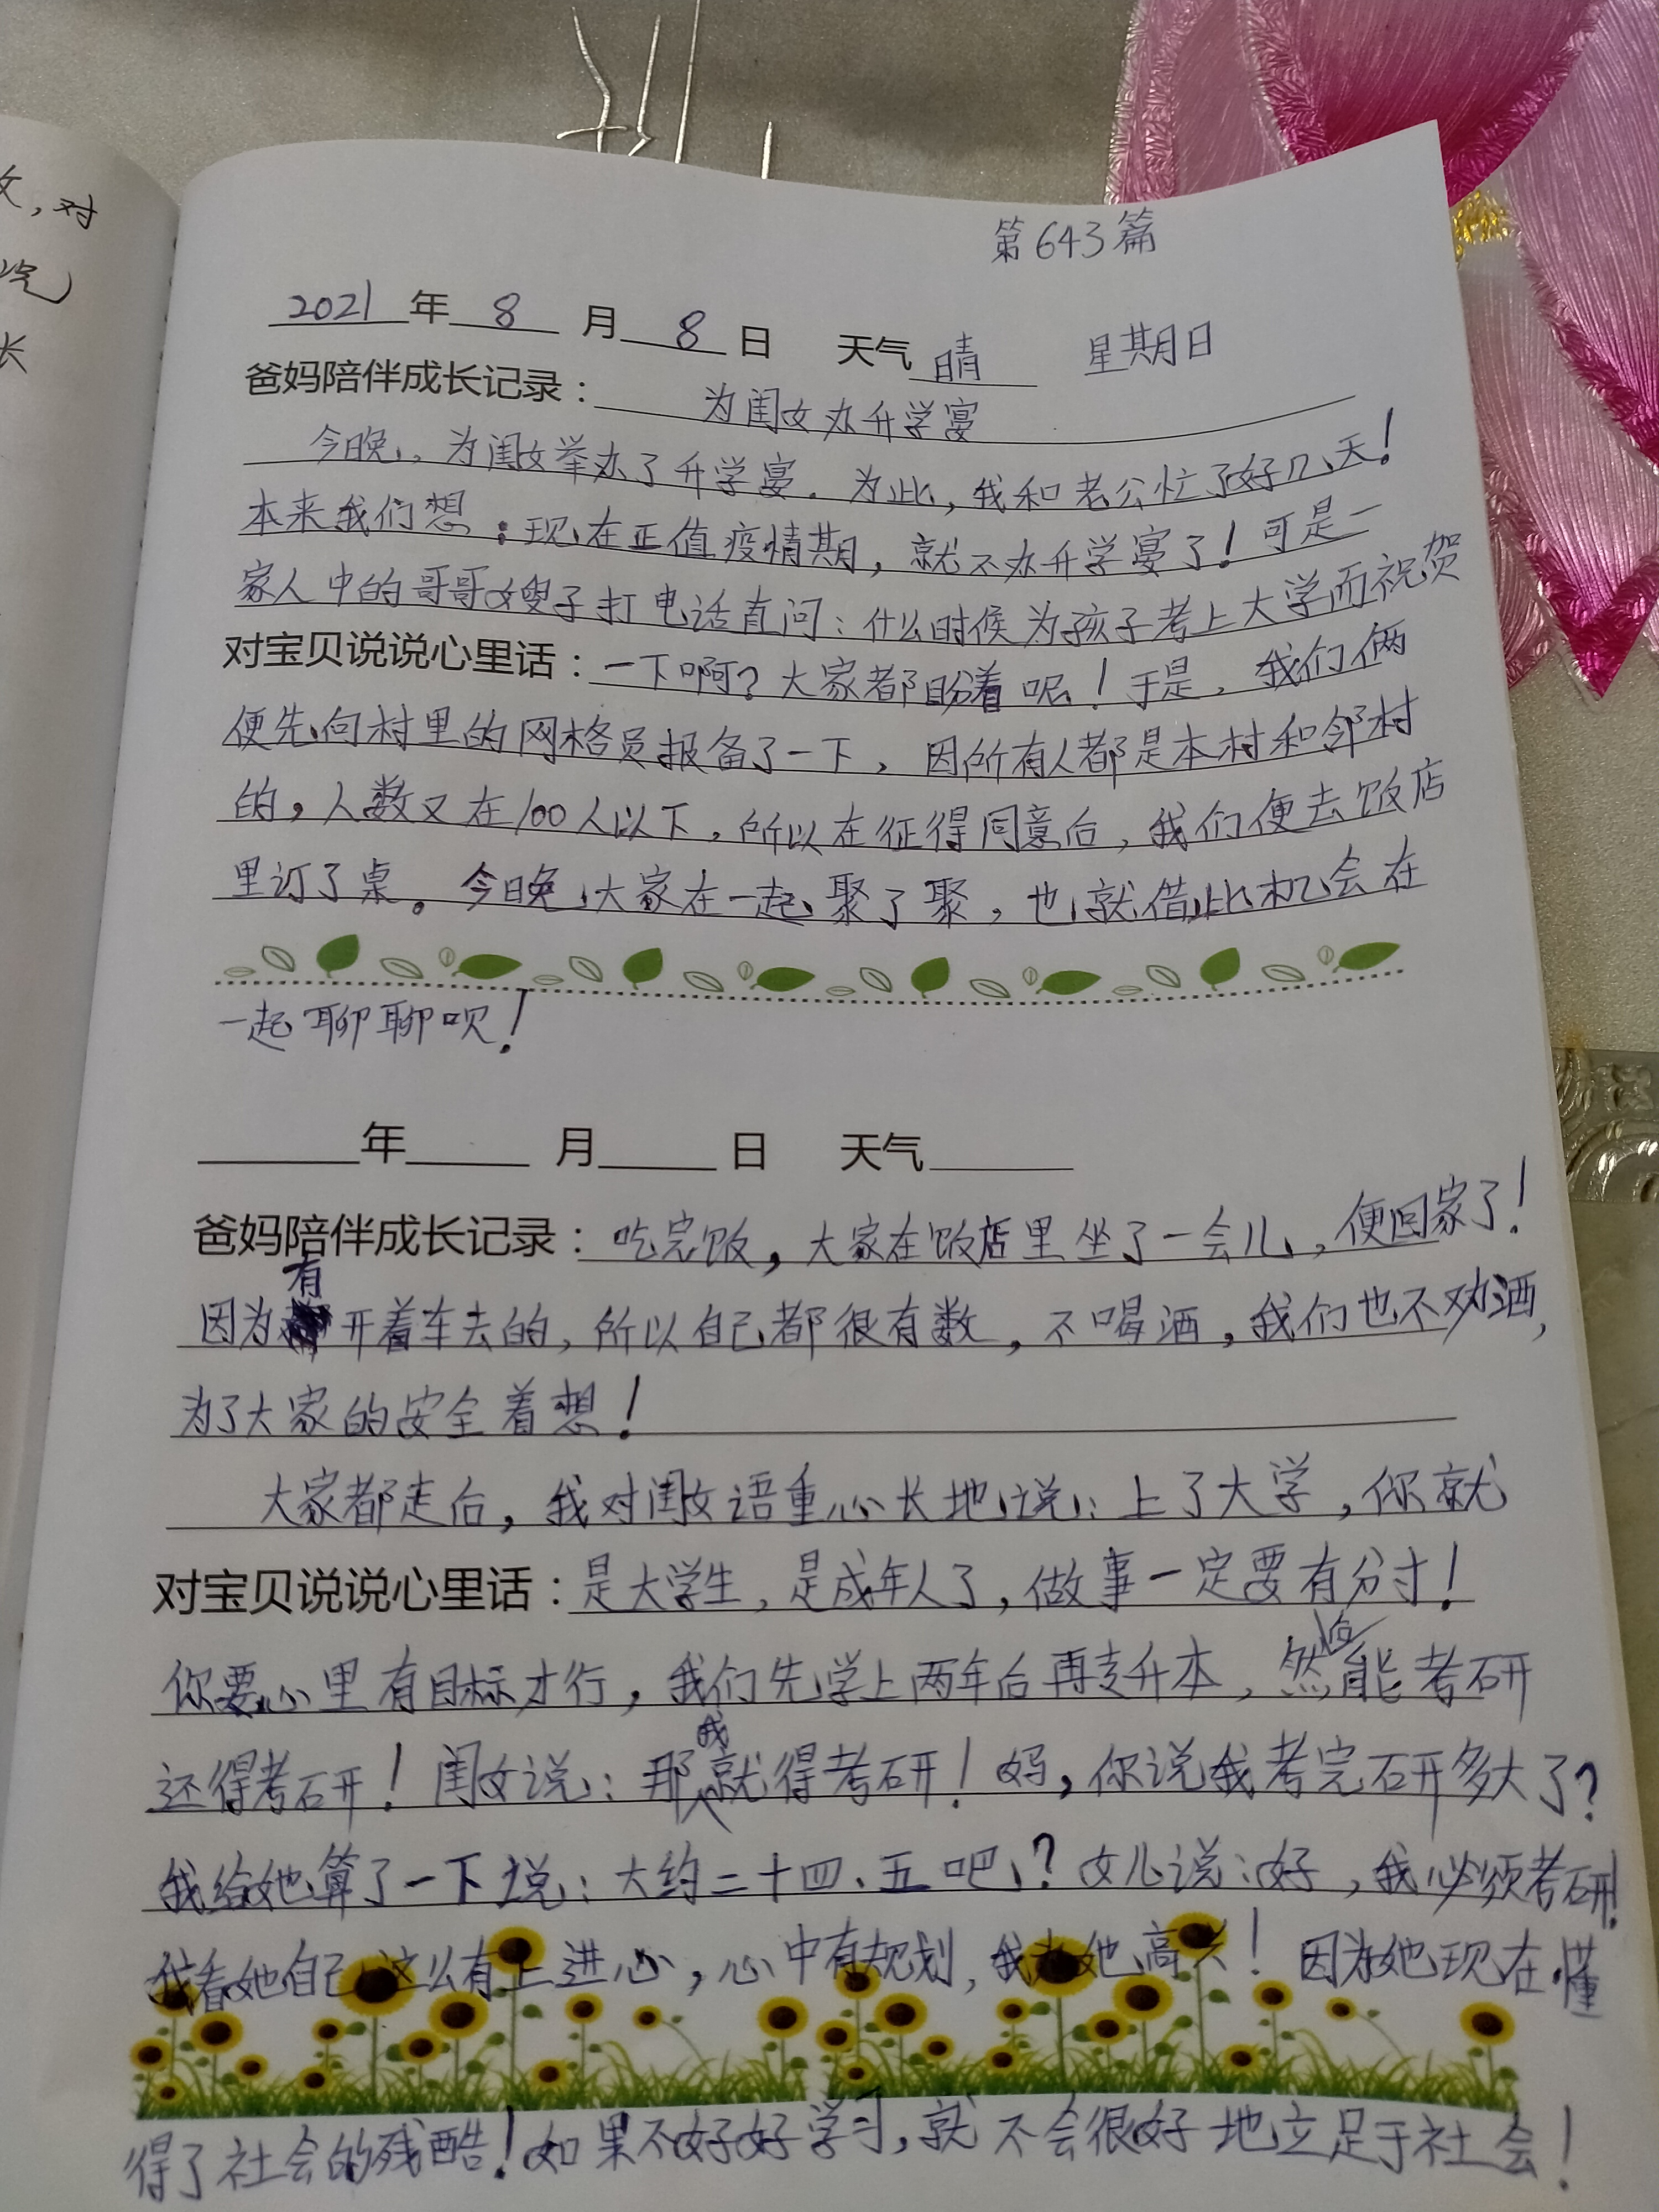 文,对
长
第643篇
2021年8月8日 天气晴 星期日
爸妈陪伴成长记录：为闺女办升学宴
今晚,为闺女举办了升学宴。为此,我和老公忙了好几天!
本来我们想:现在正值疫情期,就不办升学宴了!可是一
家人中的哥哥嫂子打电话直问:什么时候为孩子考上大学而祝贺
对宝贝说说心里话：一下啊?大家都盼着呢!于是,我们俩
便先向村里的网格员报备了一下,因所有人都是本村和邻村
的,人数又在100人以下,所以在征得同意后,我们便去饭店
里订了桌。今晚,大家在一起聚了聚,也就借此机会在
一起聊聊呗!
年 月 日 天气
爸妈陪伴成长记录：吃完饭,大家在饭店里坐了一会儿,便回家了!
因为有开着车去的,所以自己都很有数,不喝酒,我们也不劝酒,
为了大家的安全着想!
大家都走后,我对闺女语重心长地说:上了大学,你就
对宝贝说说心里话：是大学生,是成年人了,做事一定要有分寸!
你要心里有目标才行,我们先学上两年后再专升本,然后能考研
还得考研!闺女说:那我就得考研!妈,你说我考完研多大了?
我给她算了一下说:大约二十四、五吧?女儿说:好,我必须考研!
我看她自己这么有上进心,心中有规划,我为她高兴!因为她现在懂
得了社会的残酷!如果不好好学习,就不会很好地立足于社会!